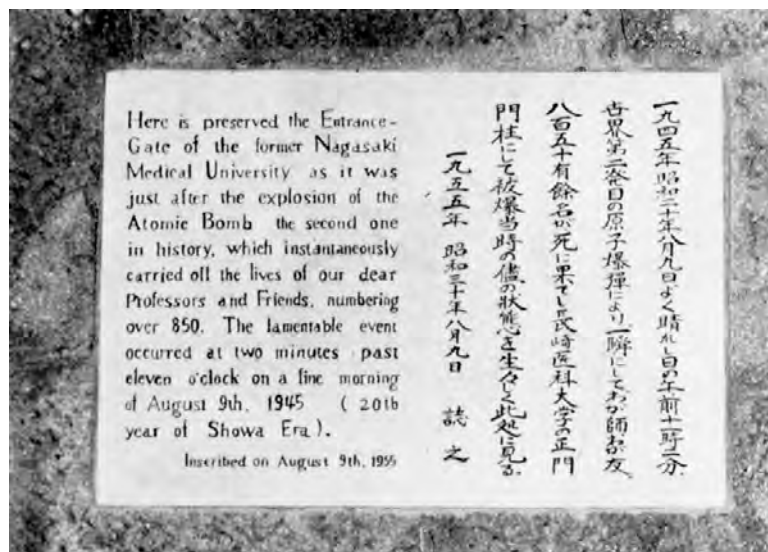 Here is preserved the Entrance-
Gate of the former Nagasaki
Medical University as it was
just after the explosion of the
Atomic Bomb the second one
in history, which instantaneously
carried off the lives of our dear
Professors and Friends, numbering
over 850. The lamentable event
occurred at two minutes past
eleven o'clock on a fine morning
of August 9th, 1945 ( 20th
year of Showa Era ).
Inscribed on August 9th, 1955
一九四五年昭和二十年八月九日よく晴れし日の午前十一時二分、
世界第二発目の原子爆彈により、一瞬にしてわが師わが友
八百五十有餘名が死に果てし長崎医科大学の正門
門柱にして被爆当時の儘の狀態を生々しく此処に見る。
一九五五年 昭和三十年八月九日 誌之